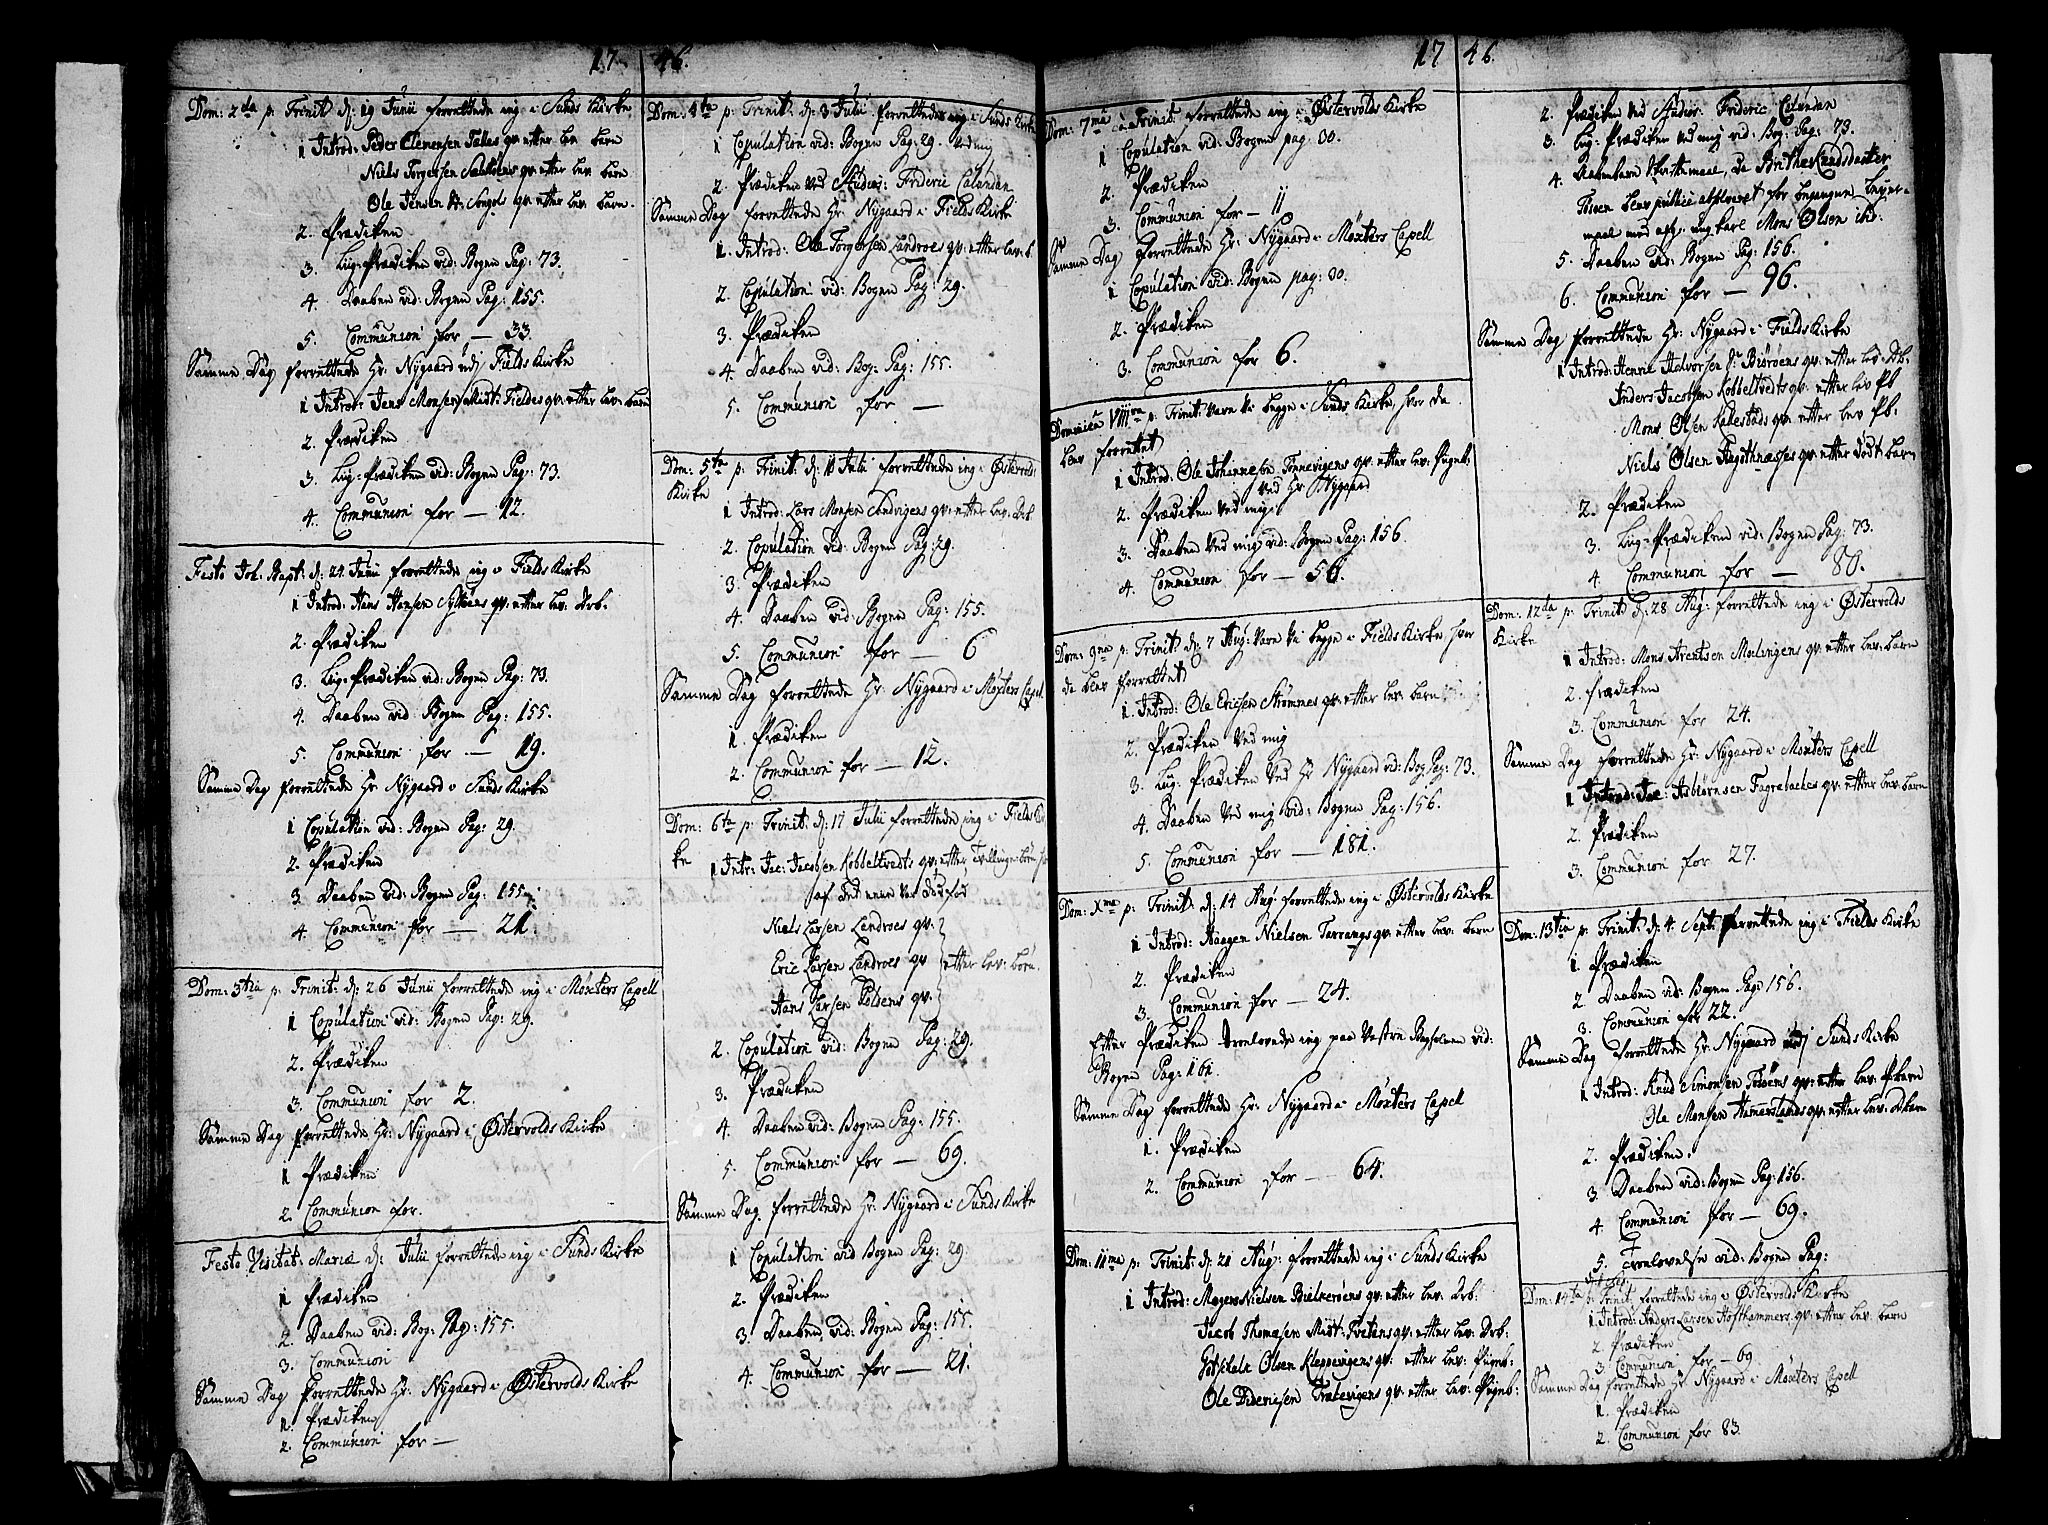 17 46.
Dom: 2da p: Trinit: d: 19 Junii forrettede ieg i Sunds Kirke
1 Introd: Peder Clemensen Telles qv: efter lev barn
Niels Torgersen qv: efter lev: barn
Ole Jensen qv: efter lev: barn
2. Prædiken
3. Liig-Prædiken vid: Bogen Pag: 73.
4. Daaben vid: Bogen Pag: 155.
5. Communion for — 33
Samme Dag forrettede Hr: Nygaard udj Fields Kirke
1 Introd: Jens Monsen Midt: Fieldes qv: efter lev: barn
2. Prædiken
3. Liig-Prædiken vid: Bogen Pag: 73.
4. Communion for — 12.
Festo Joh: Bapt: d: 24 Junii forrettede ieg i Fields Kirke
1 Introd: Hans Hansen qv: efter lev: Drb.
2. Prædiken
3. Liig-Prædiken vid: Bogen Pag: 73.
4. Daaben vid: Bogen Pag: 155.
5. Communion for — 19.
Samme Dag forrettede Hr: Nygaard i Sunds Kirke
1 Copulation vid: Bogen Pag: 29.
2. Prædiken
3. Daaben vid: Bogen Pag: 155
4. Communion for — 21.
Dom: 3tia p: Trinit: d: 26 Junii forrettede ieg i Møxters Capell
1 Copulation vid: Bogen Pag: 29.
2. Prædiken
3. Communion for 2.
Samme Dag forrettede Hr: Nygaard i Østervolds Kirke
1 Prædiken
2. Communion for.
Festo Visitat: Mariæ d: Julii forrettede ieg i Sunds Kirke
1 Prædiken
2. Daaben vid: Bog: Pag: 155.
3. Communion
Samme Dag forrettede Hr: Nygaard i Østervolds Kirke
1. Prædiken
2. Communion for —
Dom: 4ta p: Trinit: d: 3 Julii forrettede ieg i Sunds Kirke
1 Copulation vid: Bogen Pag: 29. ved mig
2. Prædiken ved Studios: Frideric Calundan
Samme Dag forrettede Hr: Nygaard i Fields Kirke
1. Introd: Ole Torgersen Landroes qv: efter lev: b.
2. Copulation vid: Bogen Pag: 29.
3. Prædiken
4. Daaben vid: Bog: Pag: 155.
5. Communion for —
Dom: 5ta p: Trinit: d: 10 Julii forrettede ieg i Østervolds
Kirke
1 Introd: Lars Monsen Sandvigens qv: efter lev: Drb
2. Copulation vid: Bogen Pag: 29.
3. Prædiken
4. Daaben vid: Bogen Pag: 155.
5. Communion for — 6
Samme Dag forrettede Hr: Nygaard i Møxters Capel
1. Prædiken
2. Communion for — 12.
Dom: 6ta p: Trinit: d: 17 Julii forrettede ieg i Fields Kir
ke
1 Intr: Jac: Jacobsen Kobbeltvedts qv: efter Tvillinge børn
af den ene var dødfød
Niels Larsen Landroes qv:
Eric Larsen Landroes qv efter lev: børn.
Hans Larsen qv:
2. Copulation vid: Bogen Pag: 29.
3. Prædiken
4. Daaben vid: Bogen Pag: 155.
5. Communion for — 69.
Samme Dag forrettede Hr: Nygaard i Sunds Kirke
1 Copulation vid Bogen Pag: 29.
2. Prædiken
3. Daaben vid: Bogen Pag: 155.
4. Communion for — 21.
17 46.
Dom: 7ma p: Trinit: forrettede ieg i Østervolds Kirke
1 Copulation vid: Bogen pag: 30.
2. Prædiken
3. Communion for — 11
Samme Dag forrettede Hr: Nygaard i Møxters Capell
1 Copulation vid: Bogen pag: 30.
2. Prædiken
3. Communion for 6.
Dominica VIIIva p: Trinit: vare vi begge i Sunds Kirke, hvor da
blev forrettet
1 Introd: Ole Johannesen Tonnevigens qv: efter lev: Pigeb:
ved Hr: Nygaard
2. Prædiken ved mig
3. Daaben ved mig vid: Bogen Pag: 156.
4. Communion for — 56.
Dom: 9na p: Trinit: d: 7 Aug: vare vi begge i Fields Kirke, hvor
da blev forrettet
1. Introd: Ole Ericsen Strømnes qv: efter lev: barn
2. Prædiken ved mig
3. Liig-Prædiken ved Hr Nygaard vid: Bog Pag: 73.
4. Daaben ved mig vid: Bogen Pag: 156.
5. Communion for — 181.
Dom: Xma p: Trinit: d: 14 Aug: forrettede ieg i Østervolds Kirke
1 Introd: Haagen Nielsen Tarrangs qv: efter lev: barn
2. Prædiken
3. Communion for — 24.
Efter Prædiken Troelovede ieg paa Vestre vid:
Bogen Pag: 161.
Samme Dag forrettede Hr: Nygaard i Møxters Capell
1. Prædiken
2. Communion for — 64.
Dom: 11ma p: Trinit: d: 21 Aug: forrettede ieg i Sunds Kirke
1 Introd: Mogens Nielsen Bielkerøens qv: efter lev: Drb.
Jacob Thomæsen Midt: qv: efter lev: Drb:
Gotskalk Olsen Kleppevigens qv: efter lev: Pigeb:
Ole Didericsen Trælevigens qv: efter lev: Pigeb:
2. Prædiken ved Studios: Frideric Calundan
3. Liig-Prædiken ved mig vid: Bog: Pag: 73.
4. Aabenbare Skriftemaal, da Brithe Knudsdaatter
Tosøen blev publicè absolveret for begangne Leyer-
maal med ung karl Mons Olsen ibid:
5. Daaben vid: Bogen Pag: 156.
6. Communion for — 96.
Samme Dag forrettede Hr: Nygaard i Fields Kirke
1 Introd: Henric Halvorsen qv: efter lev: Db.
Anders Jacobsen Kobbeltvedts qv: efter lev Pb
Mons Olsen qv: efter lev Pb.
Niels Olsen qv: efter dødt barn
2. Prædiken
3. Liig-Prædiken vid: Bogen Pag: 73.
4. Communion for — 80.
Dom: 12da p: Trinit: d: 28 Aug: forrettede ieg i Østervolds
Kirke
1 Introd: Mons Arentsen Møelvigens qv: efter lev: barn
2. Prædiken
3. Communion for 24.
Samme Dag forrettede Hr: Nygaard i Møxters Capell
1 Introd: Asbiørnsen Fagrebackes qv: efter lev: barn
2. Prædiken
3. Communion for 27.
Dom: 13tia p: Trinit: d: 4. Sept: forrettede ieg i Fields Kirke
1. Prædiken
2. Daaben vid: Bogen Pag: 156.
3. Communion for 22.
Samme Dag forrettede Hr: Nygaard udj Sunds Kirke
1 Introd: Knud Simonsen Tosøens qv: efter lev: Pbarn
Ole Monsen Hamerslands qv: efter lev: Dbarn
2. Prædiken.
3. Daaben vid: Bogen Pag: 156.
4. Communion for — 69.
5. Troelovelse vid: Bogen Pag:
Dom: 14ta p: Trinit: forrettede ieg i Østervolds Kirke
1. Introd: Anders Larsen Hofthammers qv: efter lev: barn
2. Prædiken
3. Communion for — 69
Samme Dag forrettede Hr: Nygaard i Møxters Capell
1. Prædiken
2. Communion for 83.